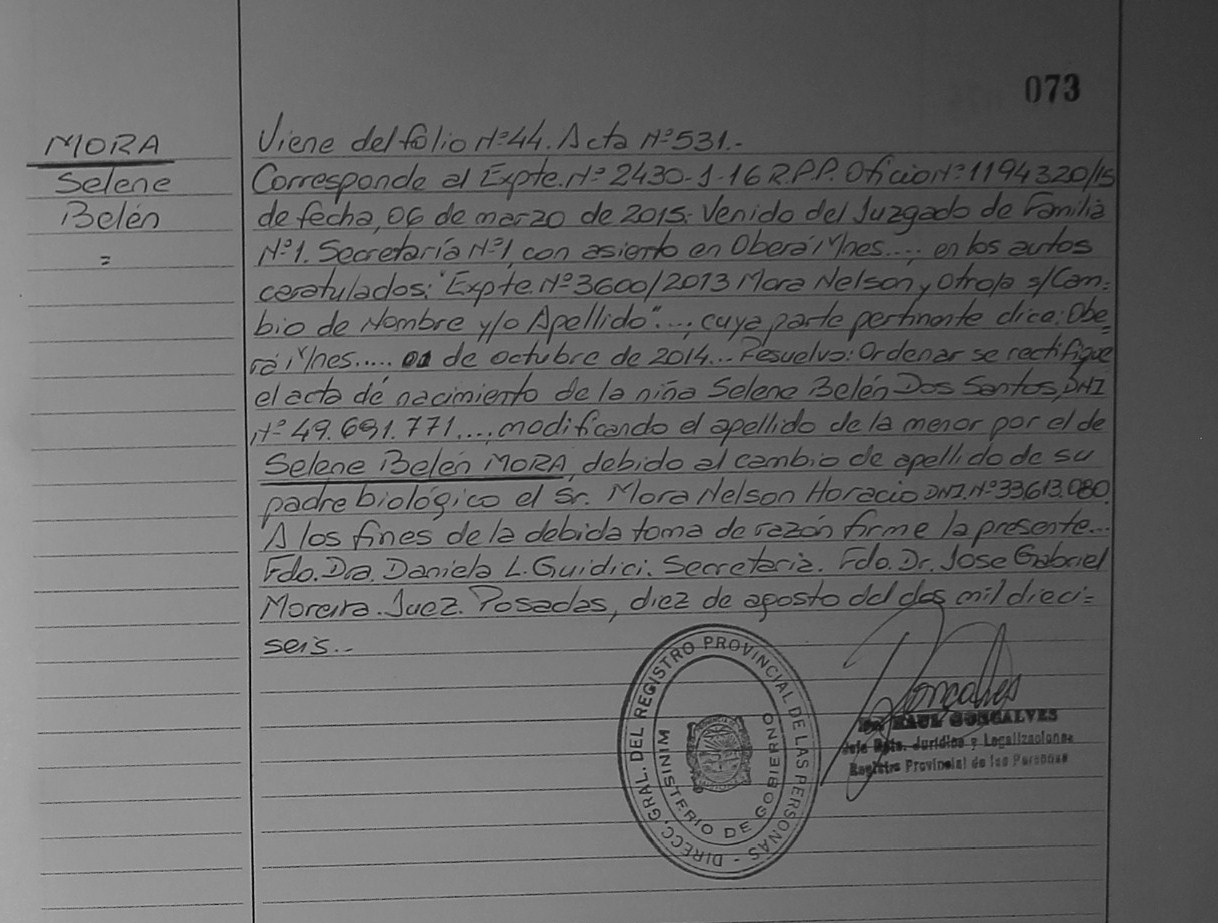 073
MORA
Selene
Belén
=
Viene del folio Nº44. Acta Nº531.-
Corresponde al Expte. Nº 2430-J-16 R.P.P. Oficio Nº1194320/15
de fecha, 06 de marzo de 2015. Venido del Juzgado de Familia
Nº1. Secretaría Nº1, con asiento en Oberá Mnes...., en los autos
caratulados: "Expte. Nº3600/2013 Mora Nelson y Otro/a s/Cam-
bio de Nombre y/o Apellido"...., cuya parte pertinente dice: Obe-
rá Mnes..... 01 de octubre de 2014... Resuelvo: Ordenar se rectifique
el acta de nacimiento de la niña Selene Belén Dos Santos, DNI
Nº 49.691.771...., modificando el apellido de la menor por el de
Selene Belén MORA, debido al cambio de apellido de su
padre biológico el Sr. Mora Nelson Horacio DNI. Nº33613.080.
A los fines de la debida toma de razón firme la presente...
Fdo. Dra. Daniela L. Guidici. Secretaria. Fdo. Dr. Jose Gabriel
Moreira. Juez. Posadas, diez de agosto del dos mil dieci=
seis.-
DIRECC. GRAL. DEL REGISTRO PROVINCIAL DE LAS PERSONAS -
MINISTERIO DE GOBIERNO
Goncalves
Dr. RAUL GONCALVES
Jefe Dpto. Jurídico y Legalizaciones
Registro Provincial de las Personas